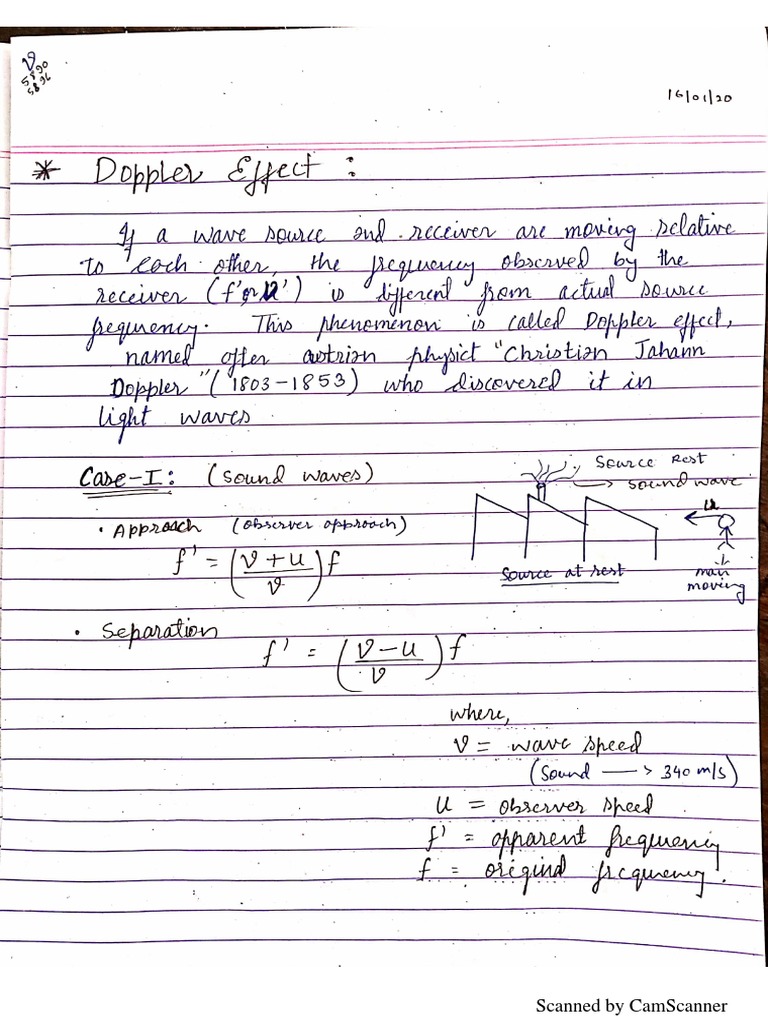 16/01/20
* Doppler Effect :
If a wave source and receiver are moving relative
to each other, the frequency observed by the
receiver (f' or ν') is different from actual source
frequency. This phenomenon is called Doppler effect,
named after austrian physict "Christian Johann
Doppler" (1803-1853) who discovered it in
light waves
Case-I: (Sound waves)
Source Rest
→ sound wave
u
• Approach (observer approach)
f' = (v+u / v) f
Source at rest
man
moving
• Separation
f' = (v-u / v) f
where,
v = wave speed
(sound → 340 m/s)
u = observer speed
f' = apparent frequency
f = original frequency.
Scanned by CamScanner